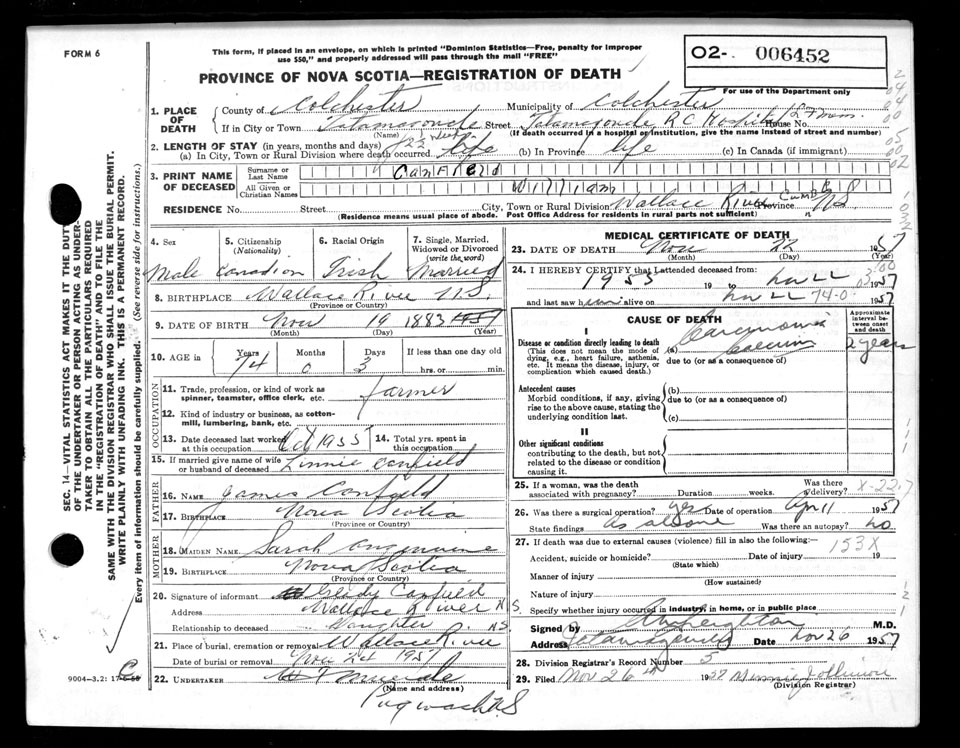 FORM 6
This form, if placed in an envelope, on which is printed "Dominion Statistics—Free, penalty for improper
use $50," and properly addressed will pass through the mail "FREE"
O2- 006452
PROVINCE OF NOVA SCOTIA—REGISTRATION OF DEATH
For use of the Department only
1. PLACE OF DEATH
County of Colchester Municipality of Colchester
If in City or Town Tatamagouche Street Tatamagouche R C Hospital House No.
(Name) (If death occurred in a hospital or institution, give the name instead of street and number)
2. LENGTH OF STAY (in years, months and days)
(a) In City, Town or Rural Division where death occurred (b) In Province life (c) In Canada (if immigrant)
3. PRINT NAME OF DECEASED
Surname or Last Name Canfield
All Given or Christian Names William
RESIDENCE No. Street City, Town or Rural Division Wallace River Cumb Province NS
(Residence means usual place of abode. Post Office Address for residents in rural parts not sufficient)
4. Sex 5. Citizenship (Nationality) 6. Racial Origin 7. Single, Married, Widowed or Divorced (write the word)
Male Canadian Irish Married
8. BIRTHPLACE Wallace River N.S.
(Province or Country)
9. DATE OF BIRTH Nov 19 1883
(Month) (Day) (Year)
10. AGE in Years Months Days If less than one day old
74 0 3 hrs. or min.
OCCUPATION
11. Trade, profession, or kind of work as spinner, teamster, office clerk, etc. farmer
12. Kind of industry or business, as cotton-mill, lumbering, bank, etc.
13. Date deceased last worked at this occupation Oct 1955 14. Total yrs. spent in this occupation
15. If married give name of wife or husband of deceased Linnie Canfield
FATHER
16. NAME James Canfield
17. BIRTHPLACE Nova Scotia
(Province or Country)
MOTHER
18. MAIDEN NAME Sarah
19. BIRTHPLACE Nova Scotia
(Province or Country)
20. Signature of informant Canfield
Address Wallace River N.S.
Relationship to deceased Daughter
21. Place of burial, cremation or removal Wallace River NS
Date of burial or removal Nov 24 1957
22. UNDERTAKER
(Name and address)
Pugwash NS
9004—3.2:
MEDICAL CERTIFICATE OF DEATH
23. DATE OF DEATH Nov 22 1957
(Month) (Day) (Year)
24. I HEREBY CERTIFY that I attended deceased from:
1955 19 to Nov 22 1957
and last saw him alive on Nov 22 1957
74-0
CAUSE OF DEATH
Approximate interval between onset and death
I
Disease or condition directly leading to death
(This does not mean the mode of dying, e.g., heart failure, asthenia, etc. It means the disease, injury, or complication which caused death.)
(a) Carcinoma 2 years
due to (or as a consequence of)
Antecedent causes
Morbid conditions, if any, giving rise to the above cause, stating the underlying condition last.
(b)
due to (or as a consequence of)
(c)
II
Other significant conditions
contributing to the death, but not related to the disease or condition causing it.
25. If a woman, was the death associated with pregnancy? Duration weeks. Was there a delivery?
26. Was there a surgical operation? yes Date of operation Apr 11 1957
State findings as above Was there an autopsy? no
27. If death was due to external causes (violence) fill in also the following:—
153X
Accident, suicide or homicide? Date of injury 19
(State which)
Manner of injury
(How sustained)
Nature of injury
Specify whether injury occurred in industry, in home, or in public place
Signed by M.D.
Address Tatamagouche Date Nov 26 1957
28. Division Registrar's Record Number 5
29. Filed Nov 26th 1957
(Division Registrar)
SEC. 14—VITAL STATISTICS ACT MAKES IT THE DUTY
OF THE UNDERTAKER OR PERSON ACTING AS UNDER-
TAKER TO OBTAIN ALL THE PARTICULARS REQUIRED
IN THE "REGISTRATION OF DEATH" AND TO FILE THE
SAME WITH THE DIVISION REGISTRAR WHO SHALL ISSUE THE BURIAL PERMIT.
WRITE PLAINLY WITH UNFADING INK. THIS IS A PERMANENT RECORD.
Every item of information should be carefully supplied. (See reverse side for instructions.)